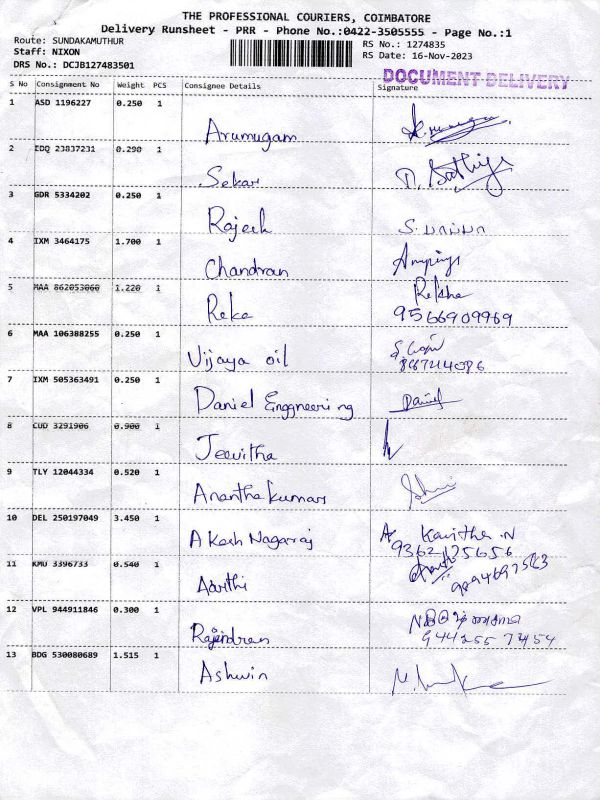 THE PROFESSIONAL COURIERS, COIMBATORE
Delivery Runsheet - PRR - Phone No.:0422-3505555 - Page No.:1
Route: SUNDAKAMUTHUR
Staff: NIXON
DRS No.: DCJB127483501
RS No.: 1274835
RS Date: 16-Nov-2023
DOCUMENT DELIVERY
S No Consignment No Weight PCS Consignee Details Signature
1 ASD 1196227 0.250 1 Arumugam
2 EDQ 23837231 0.290 1 Sekar
3 GDR 5334202 0.250 1 Rajesh
4 IXM 3464175 1.700 1 Chandran
5 MAA 862053060 1.220 1 Reka Rekha
9566909969
6 MAA 106388255 0.250 1 Vijaya oil
7 IXM 505363491 0.250 1 Daniel Enggneering Daniel
8 CUD 3291906 0.900 1 Jeevitha
9 TLY 12044334 0.520 1 Ananthakumar
10 DEL 250197049 3.450 1 Akash Nagaraj Kavitha .N
11 KMU 3396733 0.540 1 Aarthi
12 VPL 944911846 0.300 1 Rajendran
9442557454
13 BDG 530080689 1.515 1 Ashwin